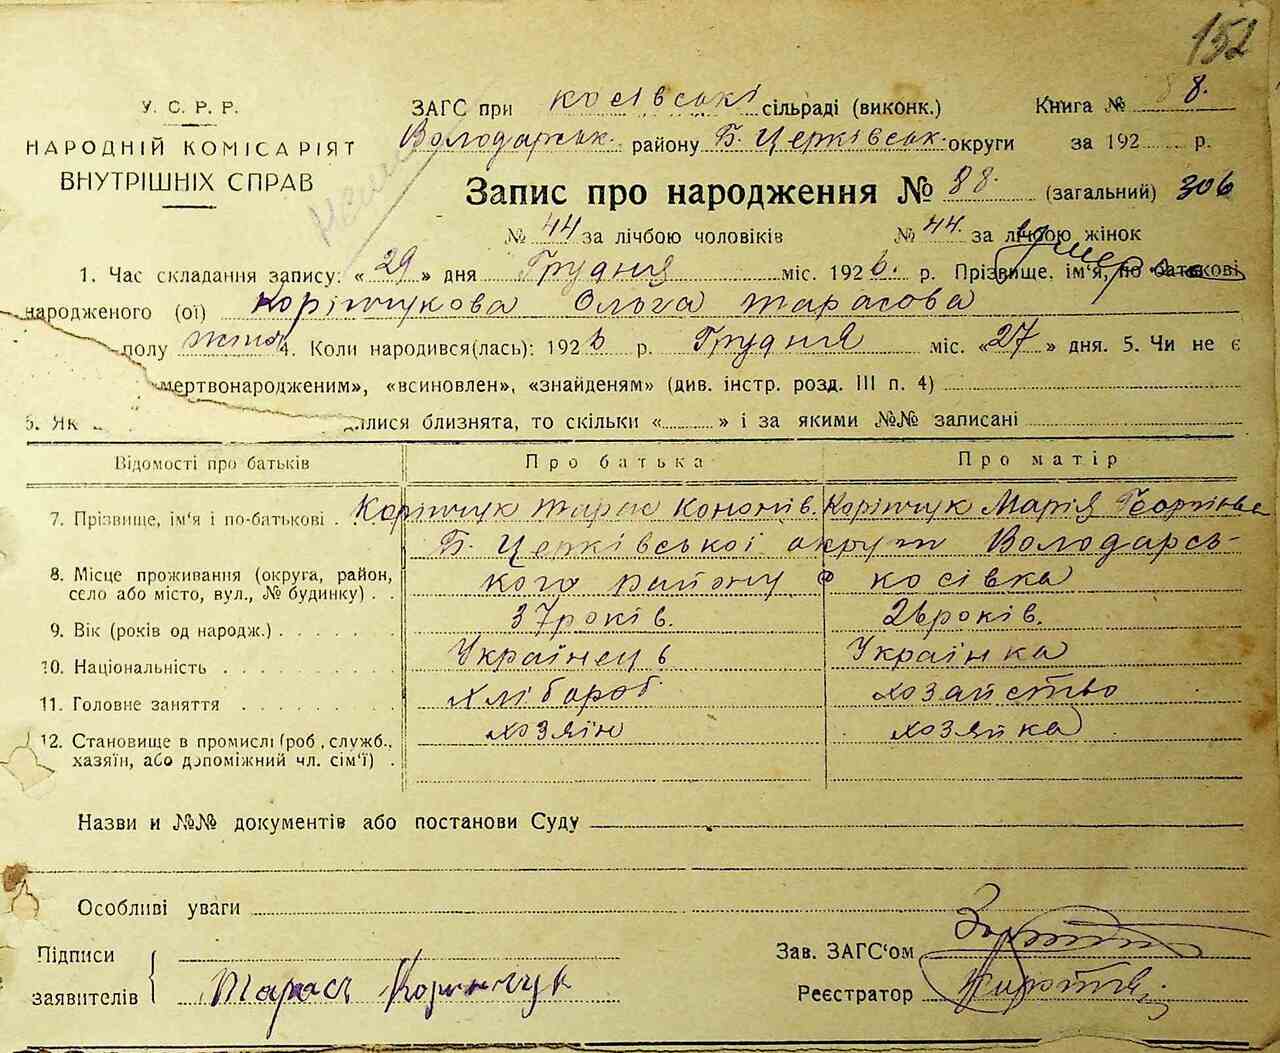 152
У. С. Р. Р.
НАРОДНІЙ КОМІСАРІЯТ
ВНУТРІШНІХ СПРАВ
ЗАГС при косівські сільраді (виконк.) Книга № 88.
Володарськ. району Б. Церківськ. округи за 192 р.
Запис про народження № 88. (загальний) 306
№ 44 за лічбою чоловіків № 44. за лічбою жінок
1. Час складання запису: «29» дня Грудня міс. 1926. р. Прізвище, ім'я, по батькові
народженого (ої) Коріпчукова Ольга Тарасова
полу жіно 4. Коли народився(лась): 1926 р. Грудня міс. «27» дня. 5. Чи не є
«мертвонародженим», «всиновлен», «знайденям» (див. інстр. розд. III п. 4)
6. Як лися близнята, то скільки « » і за якими №№ записані
Відомості про батьків Про батька Про матір
7. Прізвище, ім'я і по-батькові Коріпчук Тарас Кононів. Коріпчук Марія
8. Місце проживання (округа, район, село або місто, вул., № будинку) Б. Церківської округи Володарсь-
кого району с косівка
9. Вік (років од народж.) 37 років. 26 років.
10. Національність Українець Українка
11. Головне заняття хлібороб хозайство
12. Становище в промислі (роб, служб., хазяїн, або допоміжний чл. сім'ї) хозяїн хозяйка
Назви и №№ документів або постанови Суду
Особливі уваги
Підписи
заявителів Тарась Корипчук
Зав. ЗАГС'ом
Реєстратор